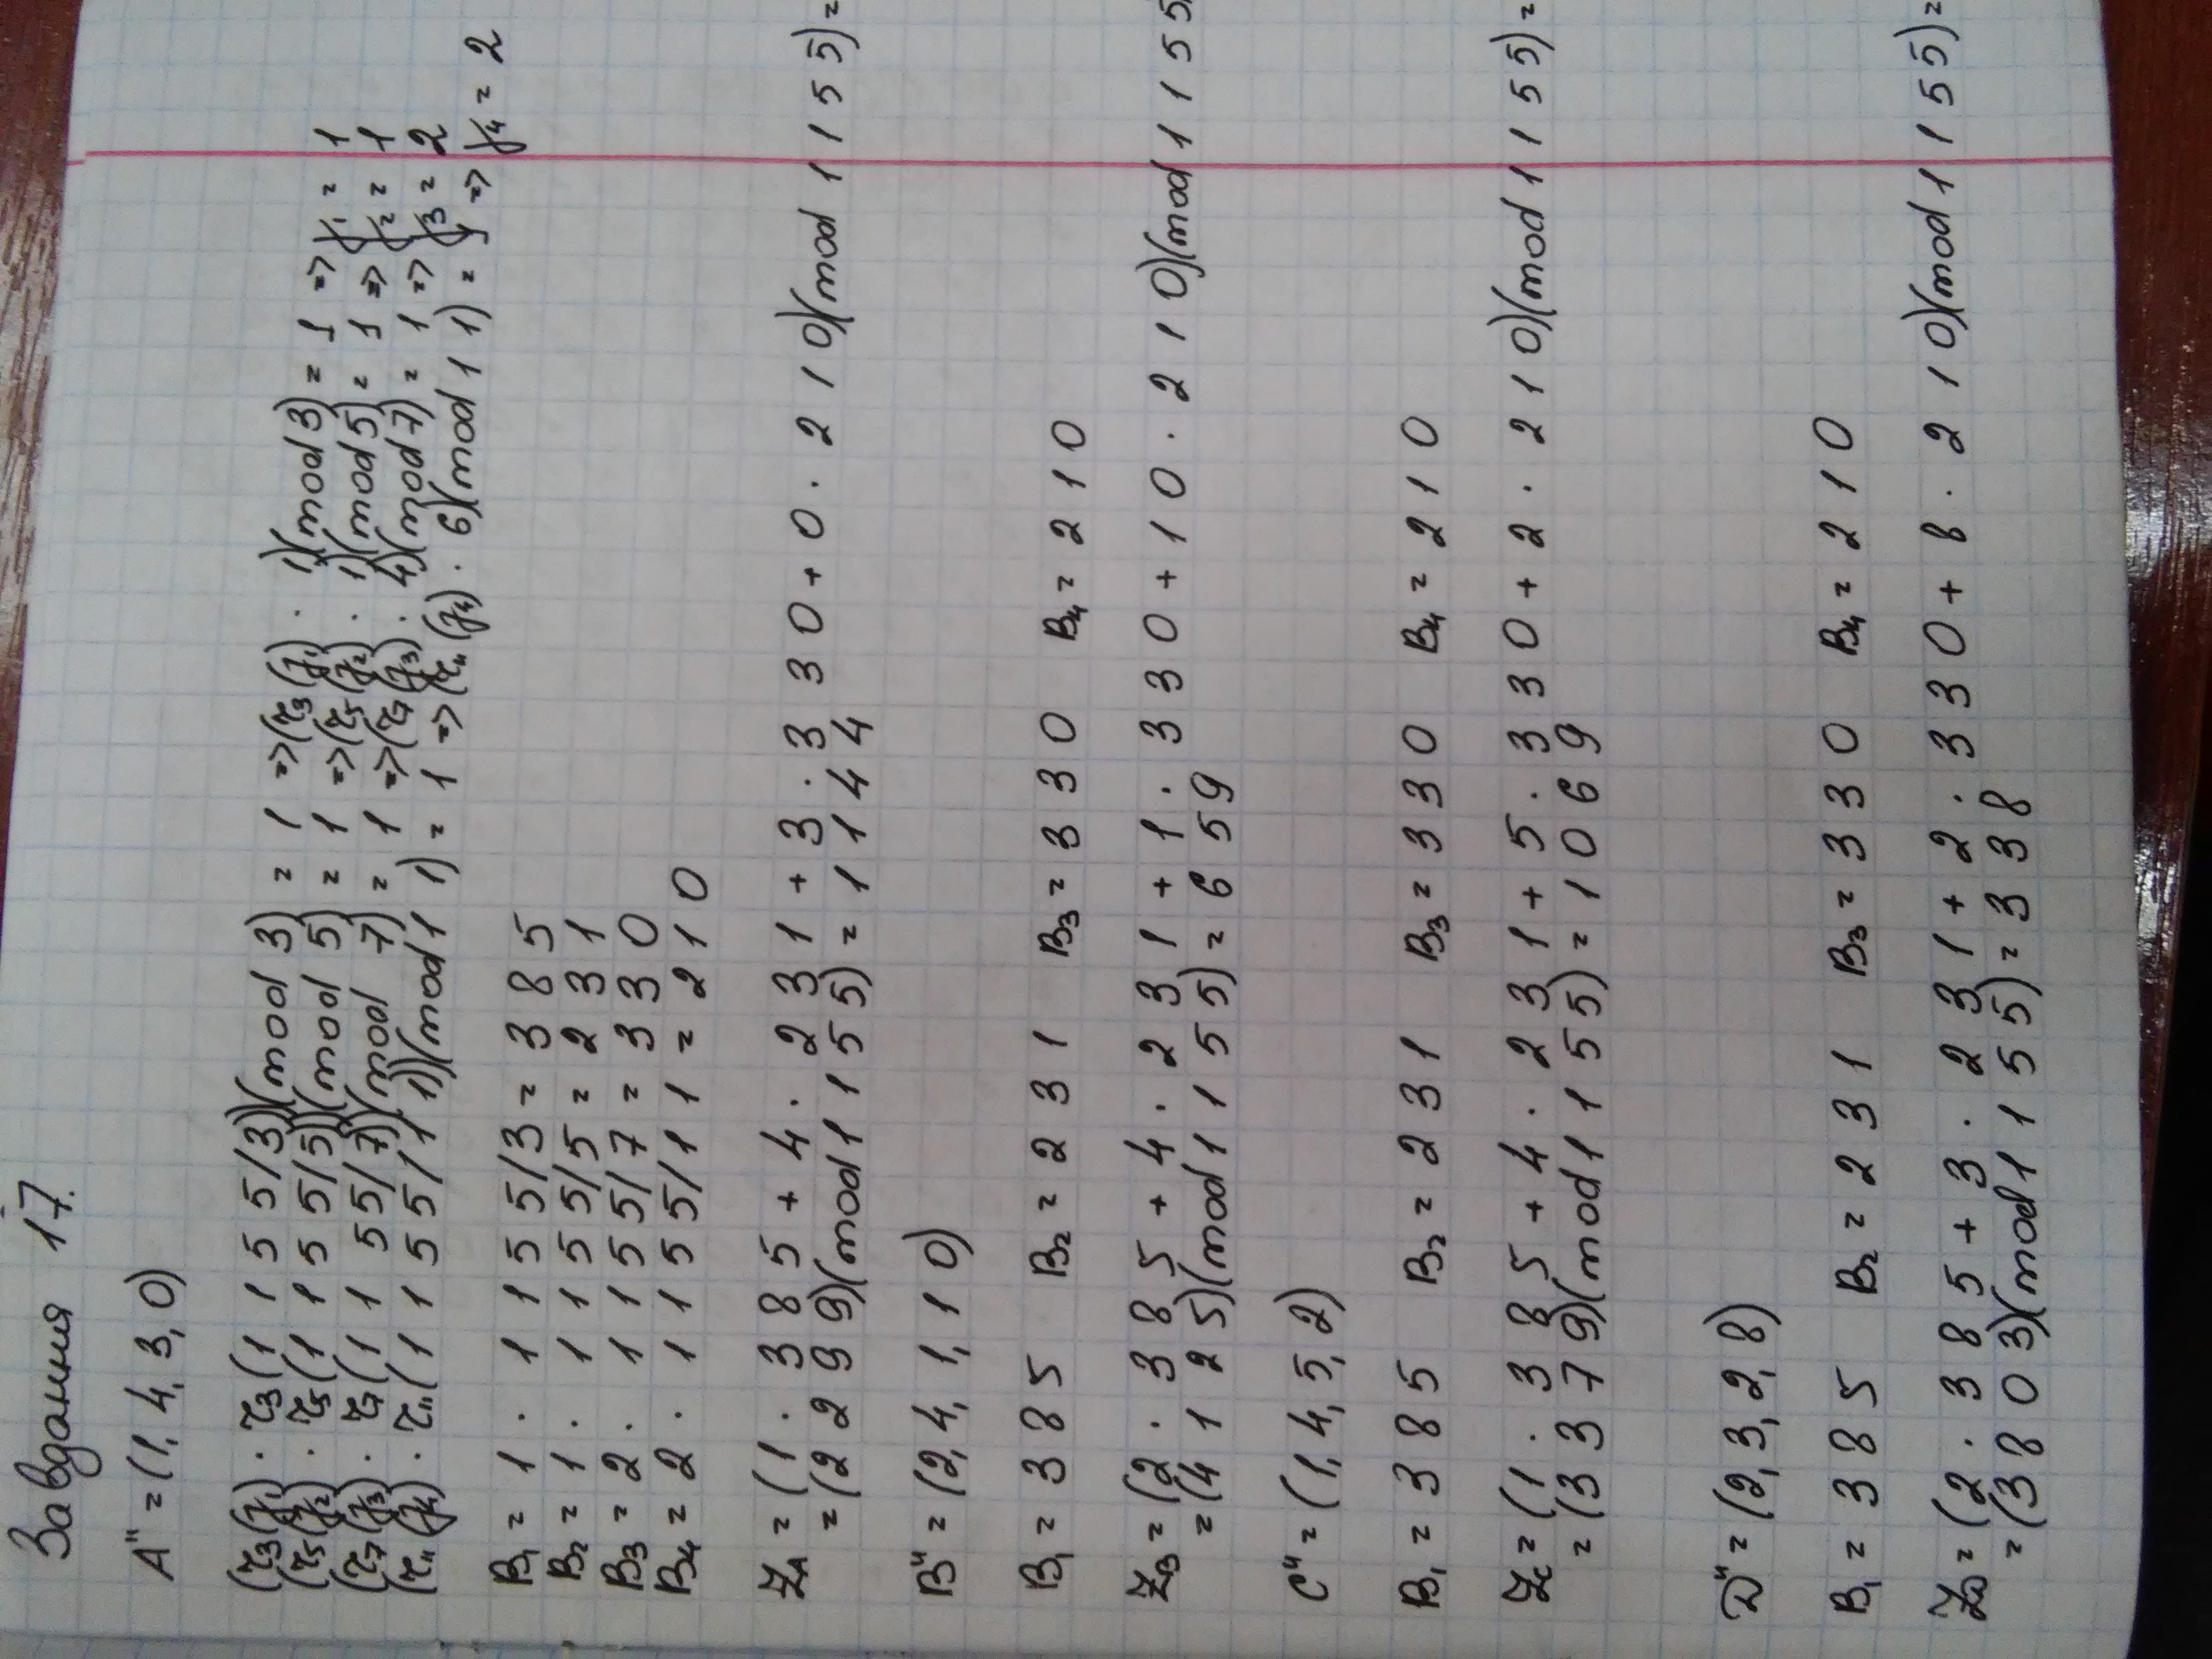 Завдання 17.
A'' = (1, 4, 3, 0)
(τ₃(γ₁) · τ₃(1155/3))(mod 3) = 1 => (τ₃(γ₁) · 1)(mod 3) = 1 => γ₁ = 1
(τ₅(γ₂) · τ₅(1155/5))(mod 5) = 1 => (τ₅(γ₂) · 1)(mod 5) = 1 => γ₂ = 1
(τ₇(γ₃) · τ₇(1155/7))(mod 7) = 1 => (τ₇(γ₃) · 4)(mod 7) = 1 => γ₃ = 2
(τ₁₁(γ₄) · τ₁₁(1155/11))(mod 11) = 1 => (τ₁₁(γ₄) · 6)(mod 11) = 1 => γ₄ = 2
B₁ = 1 · 1155/3 = 385
B₂ = 1 · 1155/5 = 231
B₃ = 2 · 1155/7 = 330
B₄ = 2 · 1155/11 = 210
Z_A = (1 · 385 + 4 · 231 + 3 · 330 + 0 · 210)(mod 1155) =
= (2299)(mod 1155) = 1144
B'' = (2, 4, 1, 10)
B₁ = 385 B₂ = 231 B₃ = 330 B₄ = 210
Z_B = (2 · 385 + 4 · 231 + 1 · 330 + 10 · 210)(mod 1155
= (4125)(mod 1155) = 659
C'' = (1, 4, 5, 2)
B₁ = 385 B₂ = 231 B₃ = 330 B₄ = 210
Z_C = (1 · 385 + 4 · 231 + 5 · 330 + 2 · 210)(mod 1155) =
= (3379)(mod 1155) = 1069
D'' = (2, 3, 2, 8)
B₁ = 385 B₂ = 231 B₃ = 330 B₄ = 210
Z_D = (2 · 385 + 3 · 231 + 2 · 330 + 8 · 210)(mod 1155) =
= (3803)(mod 1155) = 338